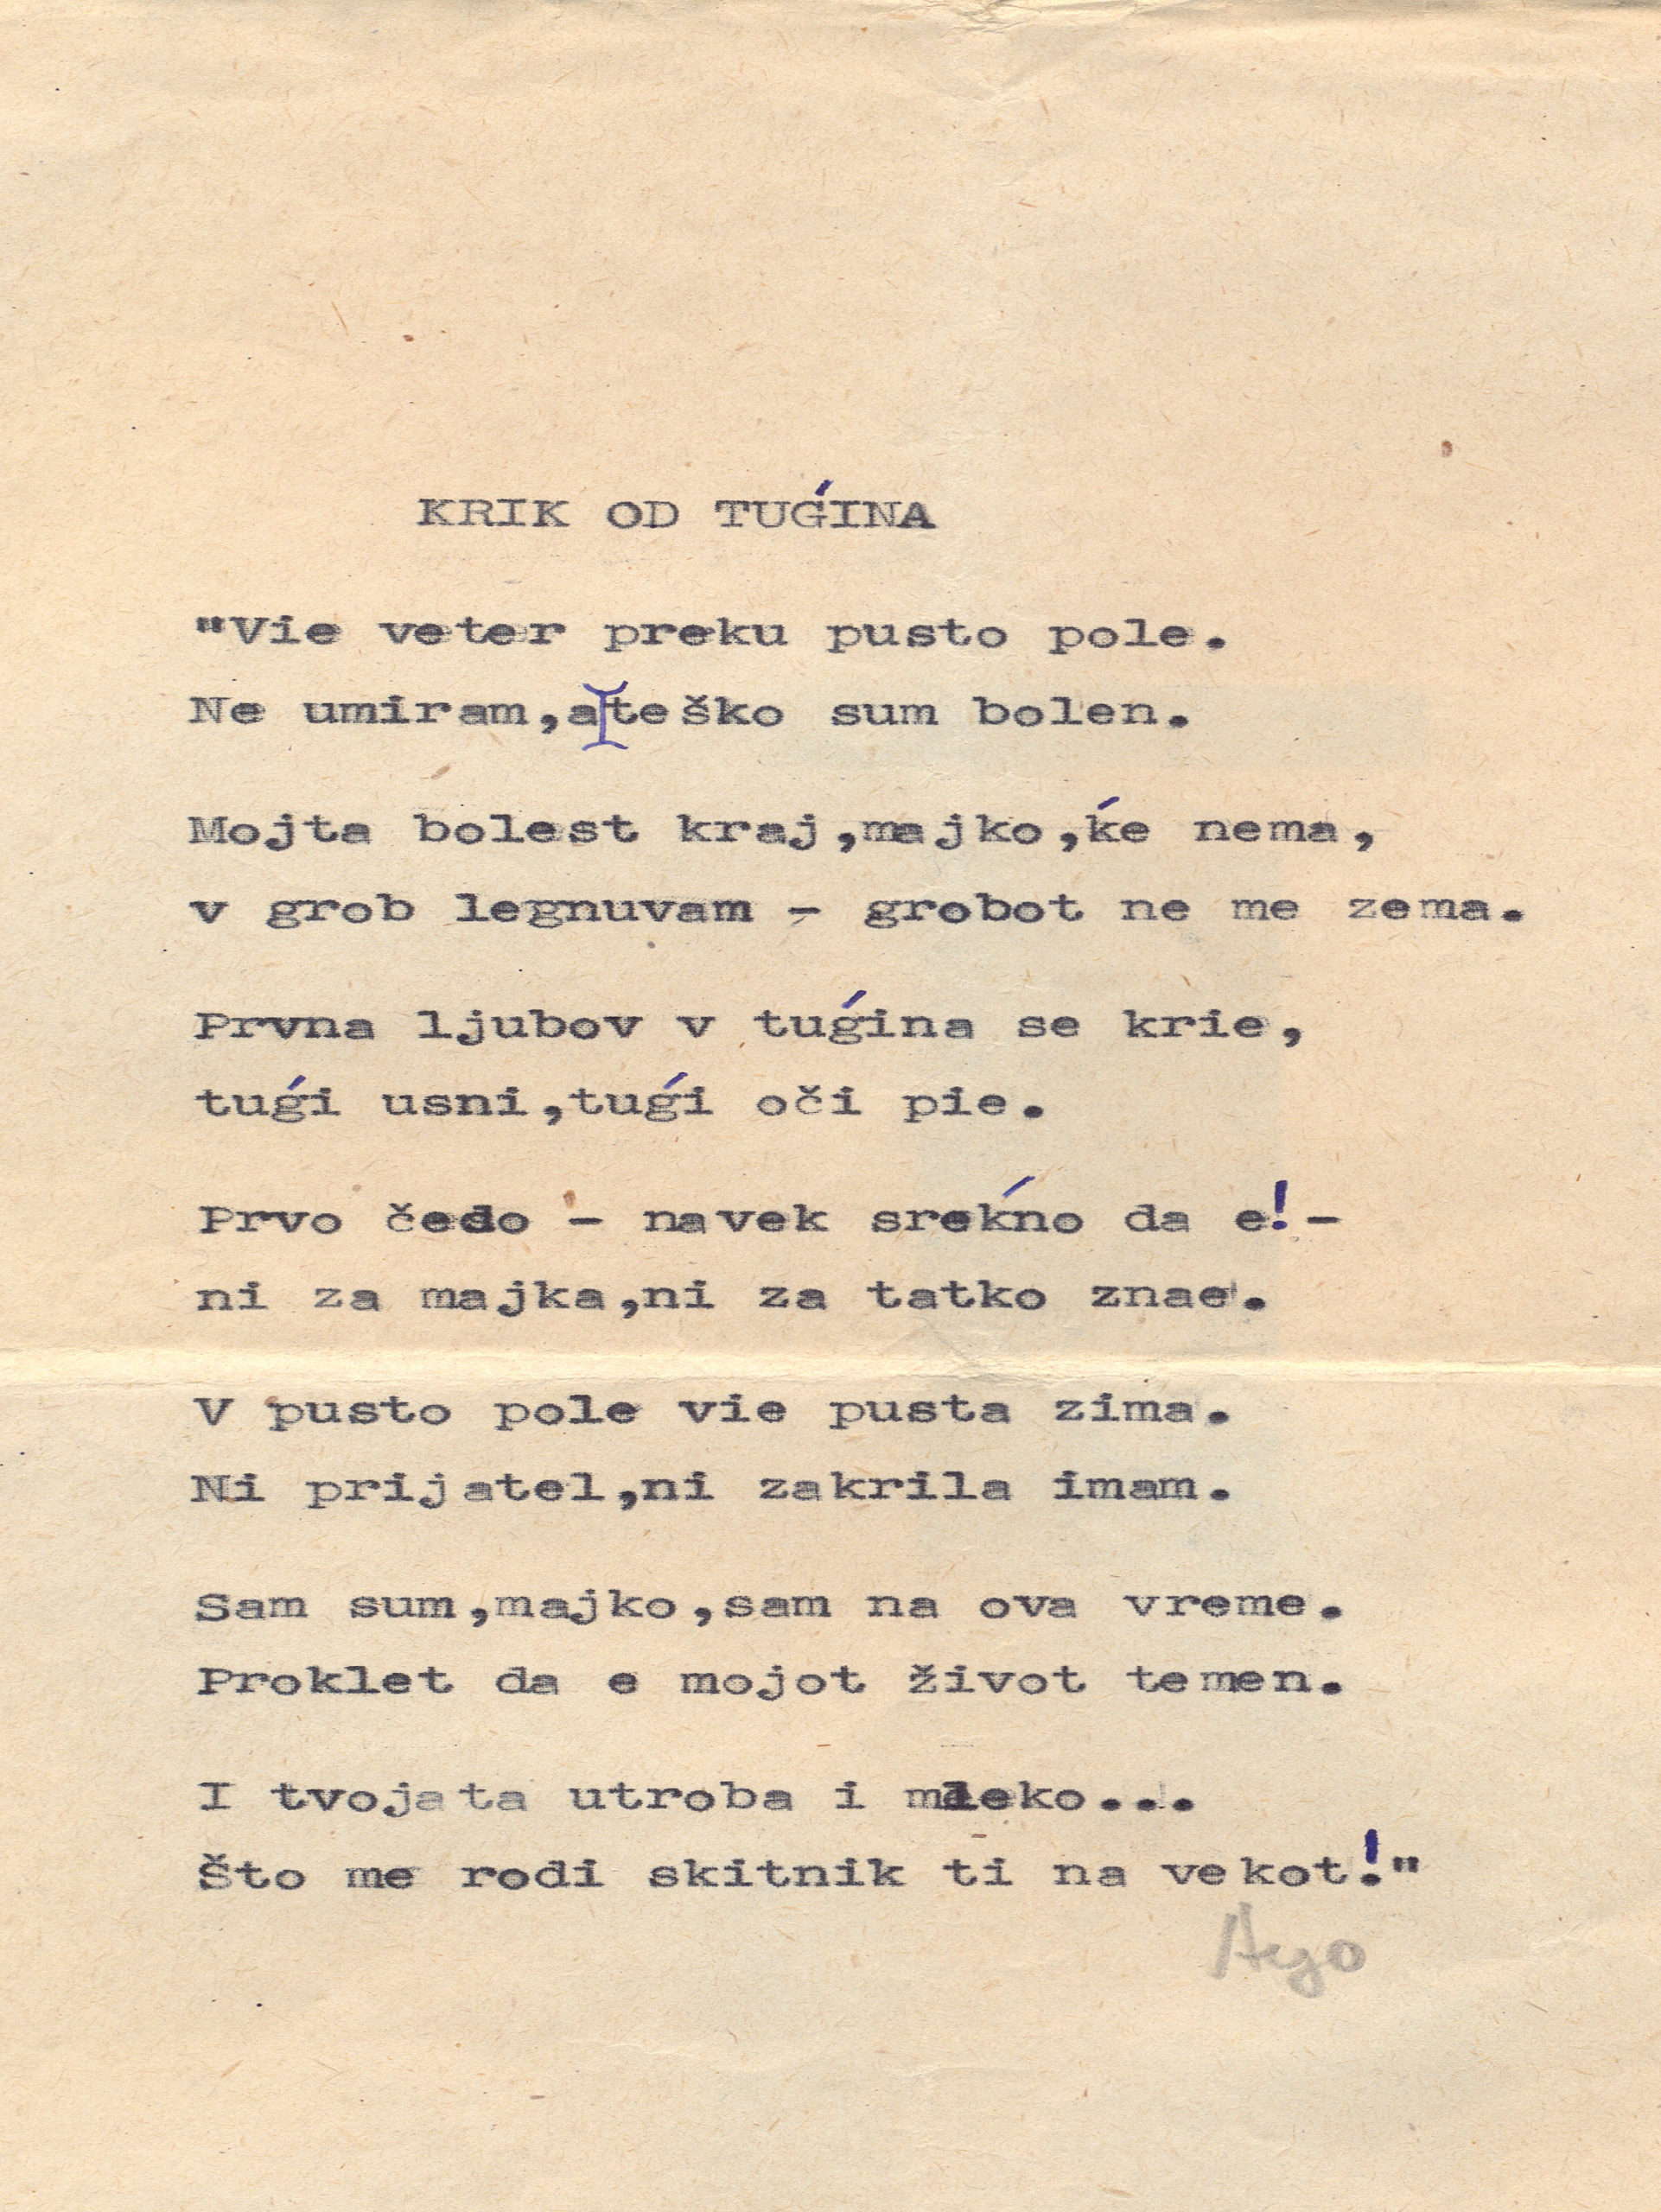 KRIK OD TUǴINA
"Vie veter preku pusto pole.
Ne umiram,a teško sum bolen.
Mojta bolest kraj,majko,ḱe nema,
v grob legnuvam - grobot ne me zema.
Prvna ljubov v tuǵina se krie,
tuǵi usni,tuǵi oči pie.
Prvo čedo - navek sreḱno da e! -
ni za majka,ni za tatko znae.
V pusto pole vie pusta zima.
Ni prijatel,ni zakrila imam.
Sam sum,majko,sam na ova vreme.
Proklet da e mojot život temen.
I tvojata utroba i mleko...
Što me rodi skitnik ti na vekot!"